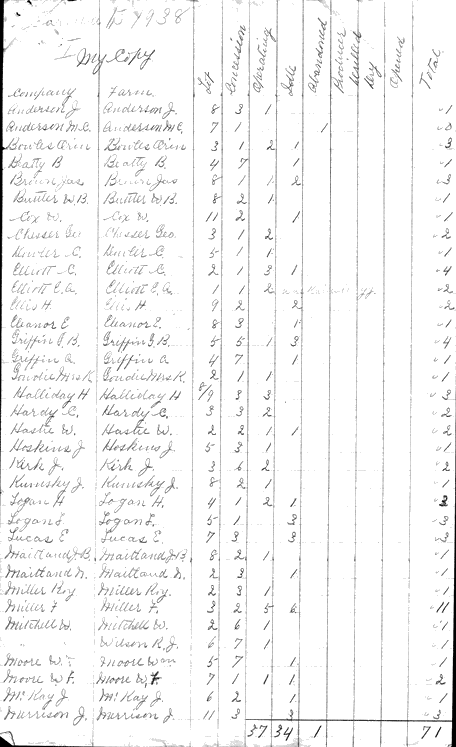 1938
I My Copy
Company Farm Lot Concession Operating Idle Abandoned Producer Drilled Dry Opened Total
Anderson J Anderson J. 8 3 1 1
Anderson M.C. Anderson M.C. 7 1 1 0
Bowles Orin Bowles Orin 3 1 2 1 3
Beatty B Beatty B. 4 7 1 1
Brown Jas Brown Jas 8 1 1 2 3
Buttler W.B. Buttler W.B. 8 2 1 1
Cox W. Cox W. 11 2 1 1
Chesser Geo Chesser Geo. 3 1 2 2
C. C. 5 1 1 1
Elliott C. Elliott C. 2 1 3 1 4
Elliott E.A. Elliott E.A. 1 1 2 2
Ellis H. Ellis H. 9 2 2 2
Eleanor E Eleanor E. 8 3 1 1
Griffin G.B. Griffin G.B. 5 5 1 3 4
Griffin A Griffin A. 4 7 1 1
Goudie Mrs K. Goudie Mrs K. 2 1 1 1
Halliday H Halliday H 8/9 3 3 3
Hardy C. Hardy C. 3 3 2 2
Hastie W. Hastie W. 2 2 1 1 2
Hoskins J Hoskins J 5 3 1 1
Kirk J. Kirk J. 3 6 2 2
Kumsky J. Kumsky J. 8 2 1 1
Logan H Logan H. 4 1 2 1 3
Logan L. Logan L. 5 1 3 3
Lucas E Lucas E. 7 3 3 3
Maitland J.B. Maitland J.B. 8 2 1 1
Maitland N. Maitland N. 2 3 1 1
Miller Roy Miller Roy. 2 3 1 1
Miller F Miller F. 3 2 5 6 11
Mitchell W. Mitchell W. 2 6 1 1
" Wilson R.J. 6 7 1 1
Moore W. Moore Wm 5 7 1 1
Moore W F. Moore W F. 7 1 1 1 2
McKay J McKay J. 6 2 1 1
Morrison J. Morrison J. 11 3 3 3
37 34 1 71